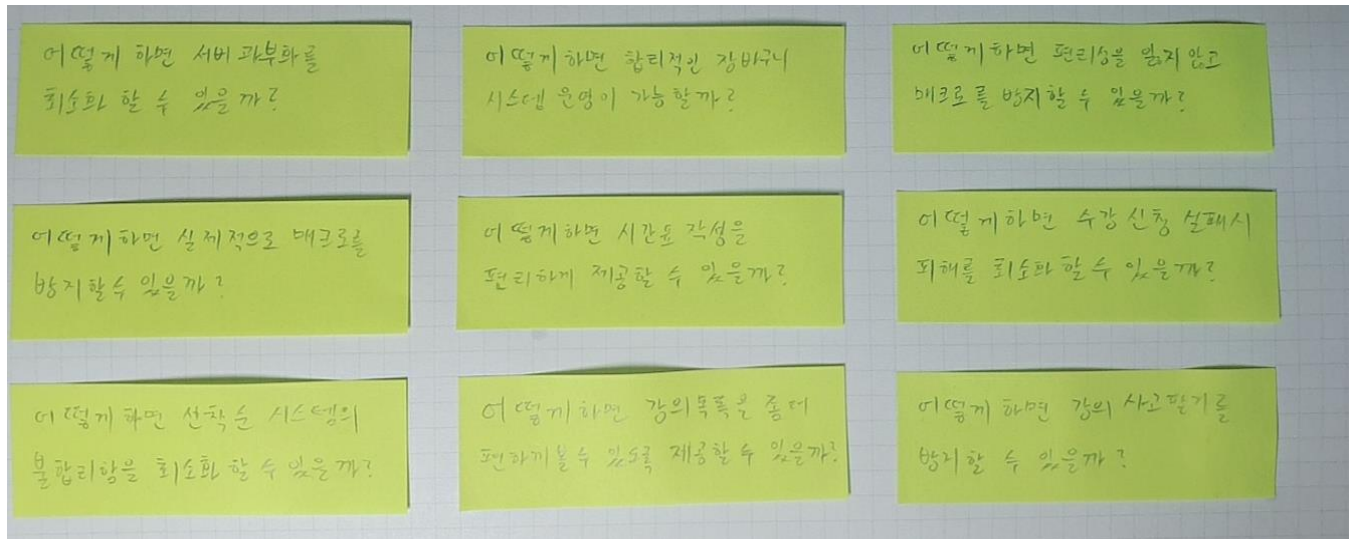 어떻게 하면 서버 과부화를
최소화 할 수 있을까?
어떻게 하면 합리적인 장바구니
시스템 운영이 가능할까?
어떻게 하면 편리성을 잃지 않고
매크로를 방지할 수 있을까?
어떻게 하면 실제적으로 매크로를
방지할 수 있을까?
어떻게 하면 시간표 작성을
편리하게 제공할 수 있을까?
어떻게 하면 수강 신청 실패시
피해를 최소화 할 수 있을까?
어떻게 하면 선착순 시스템의
불합리함을 최소화 할 수 있을까?
어떻게 하면 강의목록을 좀더
편하게볼 수 있도록 제공할 수 있을까?
어떻게 하면 강의 사고팔기를
방지할 수 있을까?